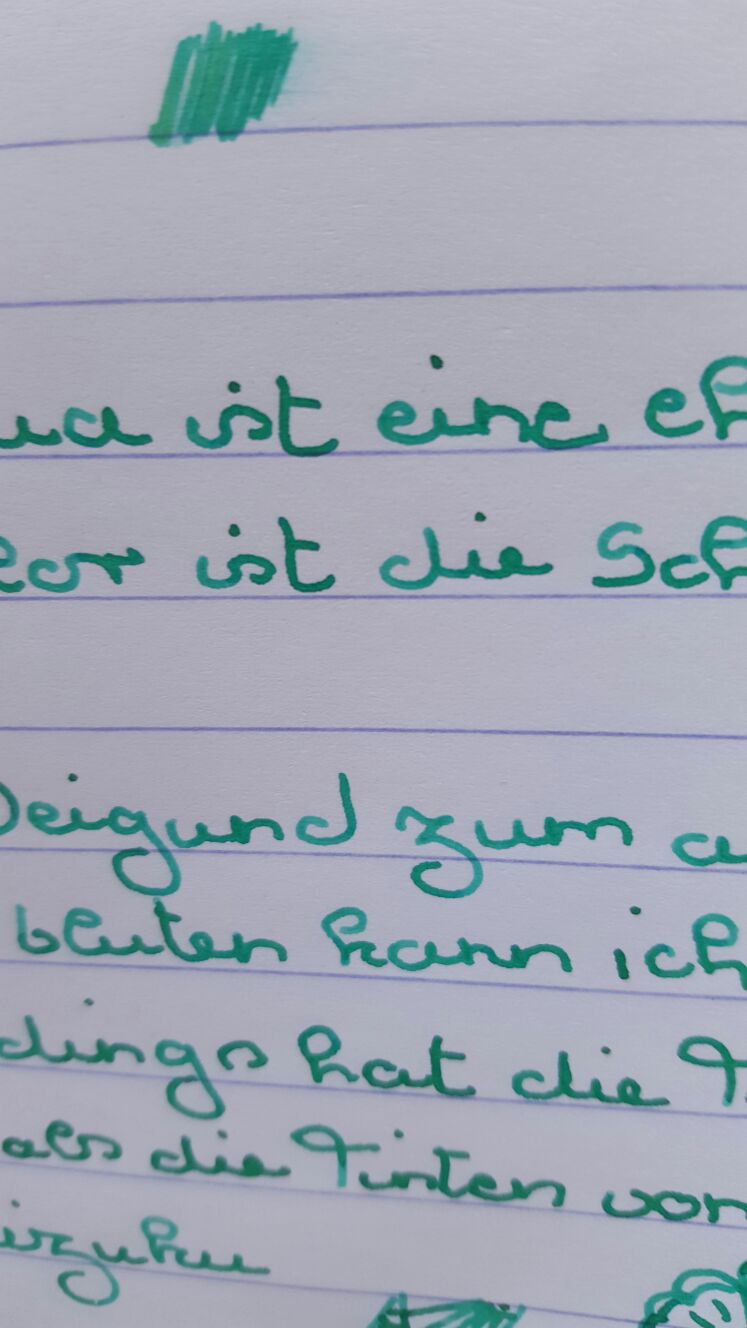 ist eine eh
ist die Sch
Neigund zum a
bluten kann ich
dings hat die T
als die Tinten von
irzuku